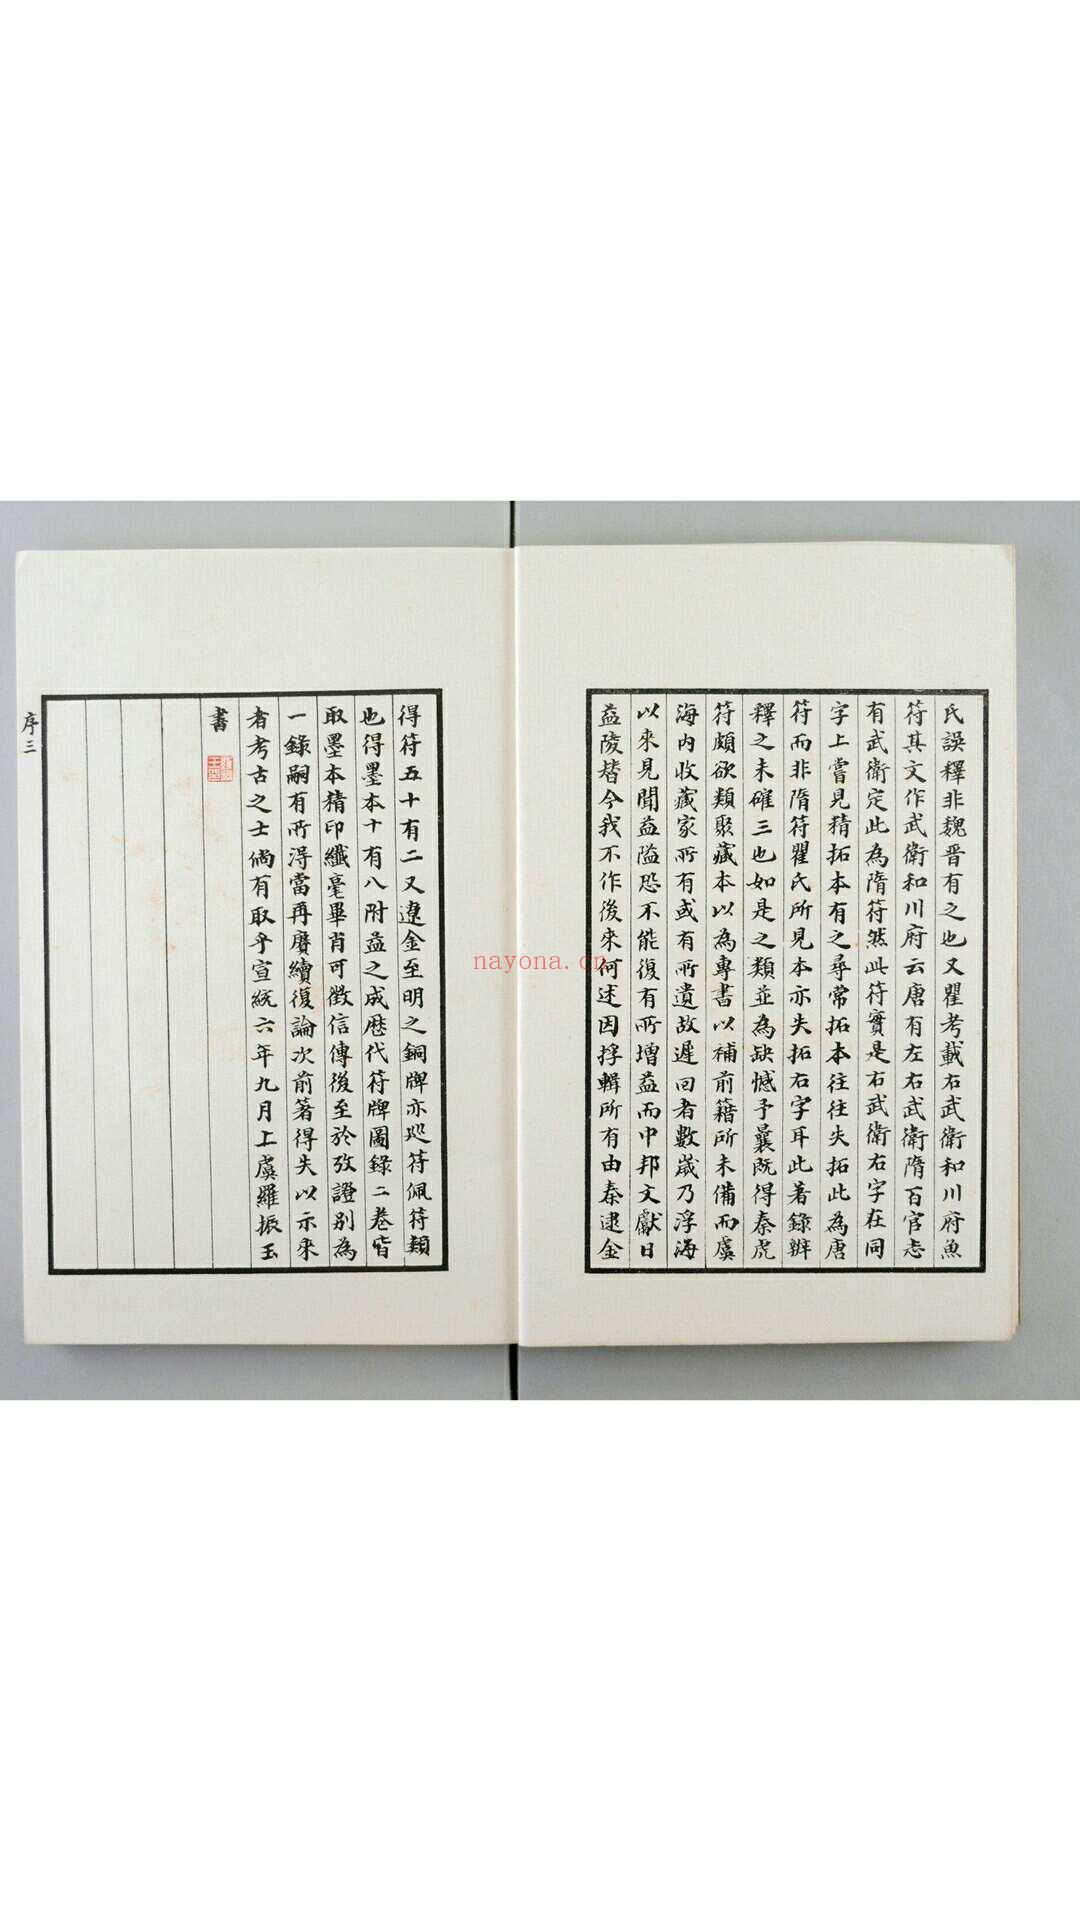 氏誤釋非魏晋有之也又瞿考載右武衛和川府魚
符其文作武衛和川府云唐有左右武衛隋百官志
有武衛定此為隋符然此符實是右武衛右字在同
字上嘗見精拓本有之尋常拓本往往失拓此為唐
符而非隋符瞿氏所見本亦失拓右字耳此著錄辨
釋之未確三也如是之類並為缺憾予曩既得秦虎
符頗欲類聚藏本以為專書以補前籍所未備而虞
海内收藏家所有或有所遺故遲回者數歲乃浮海
以來見聞益隘恐不能復有所增益而中邦文獻日
益陵替今我不作後來何述因捊輯所有由秦逮金
得符五十有二又遼金至明之銅牌亦延符佩符類
也得墨本十有八附益之成歷代符牌圖錄二卷皆
取墨本精印纖毫畢肖可徵信傳後至於攷證別為
一錄嗣有所得當再賡續復論次前著得失以示來
者考古之士倘有取乎宣統六年九月上虞羅振玉
書
序三
nayona.cn